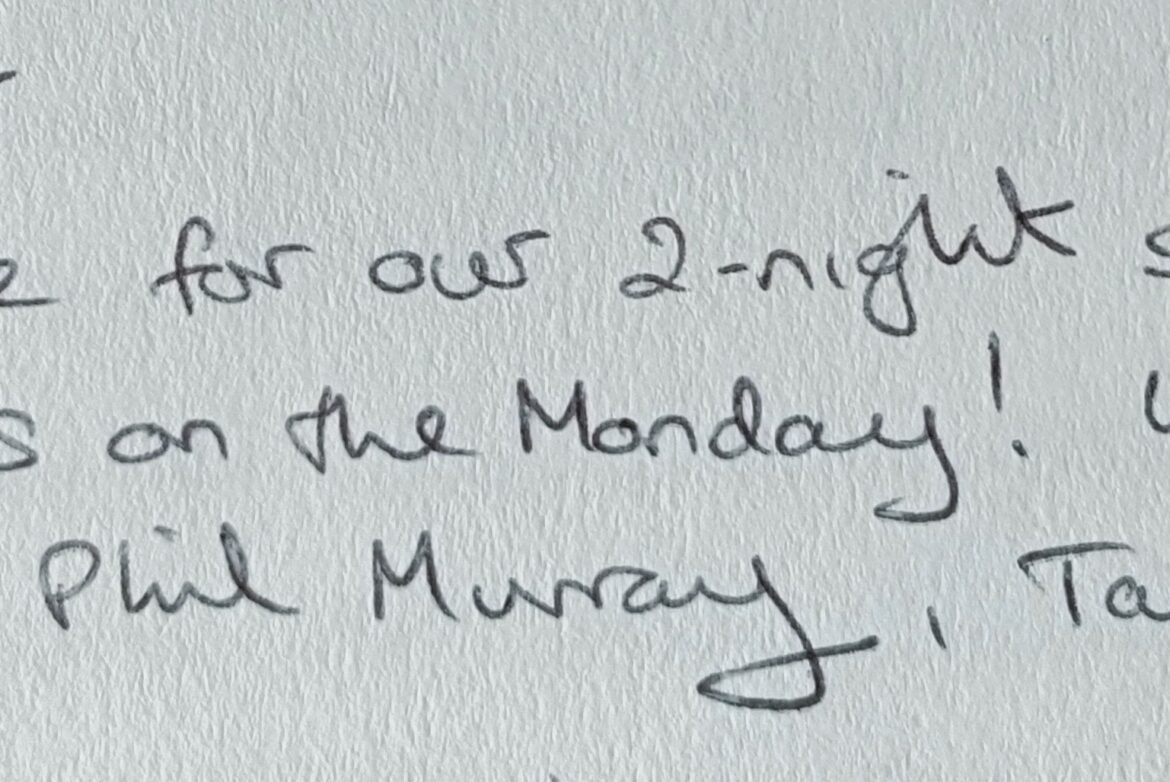 for our 2-night s
s on the Monday!
Phil Murray, Ta